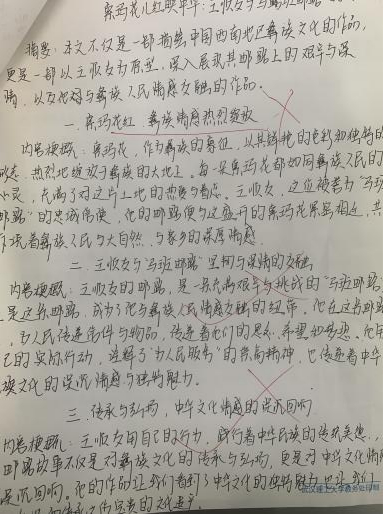 索玛花儿红映草年：王收友与马班邮路
摘要：本文不仅是一部描绘中国西南地区彝族文化的作品，
更是一部以王收友为原型，深入展现其邮路上的艰辛与深
情，以及他对与彝族人民情感交融的作品。
一.索玛花红，彝族情感热烈绽放
内容梗概：索玛花，作为彝族的象征，以其鲜艳的色彩和独特的
姿态，热烈地绽放于彝族的大地上。每一朵索玛花都如同彝族人民的
心灵，充满了对这片土地的热爱与眷恋。王收友，这位被誉为“马班
邮路”的忠诚信使，他的邮路便与这盛开的索玛花紧密相连，共
着彝族人民与大自然、与家乡的深厚情感。
二.王收友与“马班邮路”里程与深情的交融
内容梗概：王收友的邮路，是一条充满艰辛与挑战的“马班邮路
是这条邮路，成为了他与彝族人民情感交融的纽带。他在这条邮路
，为人民传递信件与物品，传递着他们的思念、希望和梦想。他用
己的实际行动，诠释了“为人民服务”的崇高精神，也传递着中华
族文化的深沉情感与独特魅力。
三.传承与弘扬，中华文化情感的深沉回响
内容梗概：王收友用自己的行动，践行着中华民族的传统美德，
邮路故事不仅是对彝族文化的传承与弘扬，更是对中华文化情
深沉回响。他的作品让我们看到了中华文化的独特魅力，也让我们
武汉理工大学教务处印制